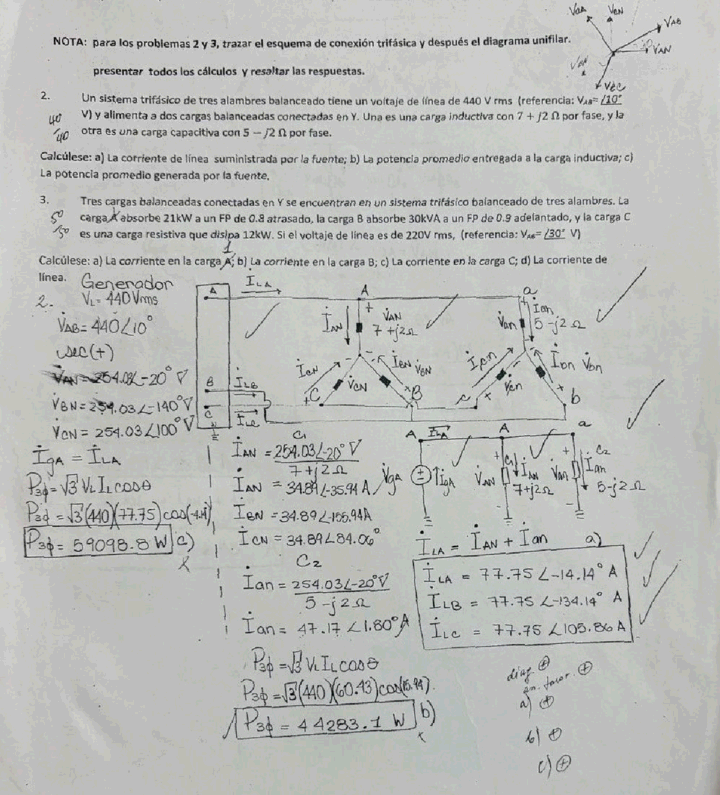 VAN
VAB
VCN
NOTA: para los problemas 2 y 3, trazar el esquema de conexión trifásica y después el diagrama unifilar.
presentar todos los cálculos y resaltar las respuestas.
2. Un sistema trifásico de tres alambres balanceado tiene un voltaje de línea de 440 V rms (referencia: VAB= /10°
V) y alimenta a dos cargas balanceadas conectadas en Y. Una es una carga inductiva con 7 + j2 Ω por fase, y la
otra es una carga capacitiva con 5 – j2 Ω por fase.
40
/40
Calcúlese: a) La corriente de línea suministrada por la fuente; b) La potencia promedio entregada a la carga inductiva; c)
La potencia promedio generada por la fuente.
3. Tres cargas balanceadas conectadas en Y se encuentran en un sistema trifásico balanceado de tres alambres. La
carga A absorbe 21kW a un FP de 0.8 atrasado, la carga B absorbe 30kVA a un FP de 0.9 adelantado, y la carga C
es una carga resistiva que disipa 12kW. Si el voltaje de línea es de 220V rms, (referencia: VAB= /30° V)
50
/50
Calcúlese: a) La corriente en la carga A; b) La corriente en la carga B; c) La corriente en la carga C; d) La corriente de
línea.
Generador
2. VL = 440 Vrms
V̇AB = 440∠10°
sec(+)
V̇AN = 254.03∠-20° V
V̇BN = 254.03∠-140° V
V̇CN = 254.03∠100° V
İgA = İLA
P3ϕ = √3 VL IL cosθ
P3ϕ = √3 (440)(77.75) cos(
P3ϕ = 59098.8 W c)
A
B
C
N
İLA
İLB
İLC
A
İAN
V̇AN
7+j2Ω
İCN
V̇CN
İBN V̇BN
C
B
a
İan
V̇an
5-j2Ω
İcn
V̇cn
İbn V̇bn
c
b
C1
İAN = 254.03∠-20° V
7+j2Ω
İAN = 34.89∠-35.94 A
İBN = 34.89∠-155.94A
İCN = 34.89∠84.06°
C2
İan = 254.03∠-20° V
5-j2Ω
İan = 47.17∠1.80° A
P3ϕ = √3 VL IL cosθ
P3ϕ = √3 (440)(60.43) cos(15.94)
P3ϕ = 44283.1 W b)
A İLA A a
V̇gA İgA V̇AN C1 İAN V̇an C2 İan
7+j2Ω 5-j2Ω
İLA = İAN + İan a)
İLA = 77.75∠-14.14° A
İLB = 77.75∠-134.14° A
İLC = 77.75∠105.86 A
diag ⊕
a) ⊕
b) ⊕
c) ⊕